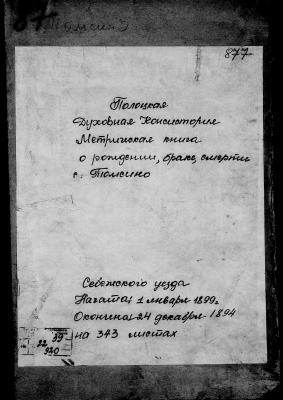 Томсин
877
Полоцкая
Духовная Консистория
Метрическая книга
о рождении, браке, смерти
с. Томсино
Себежского уезда
Начата: 1 января 1899г.
Окончена: 24 декабря 1894
на 343 листах
39
22
940